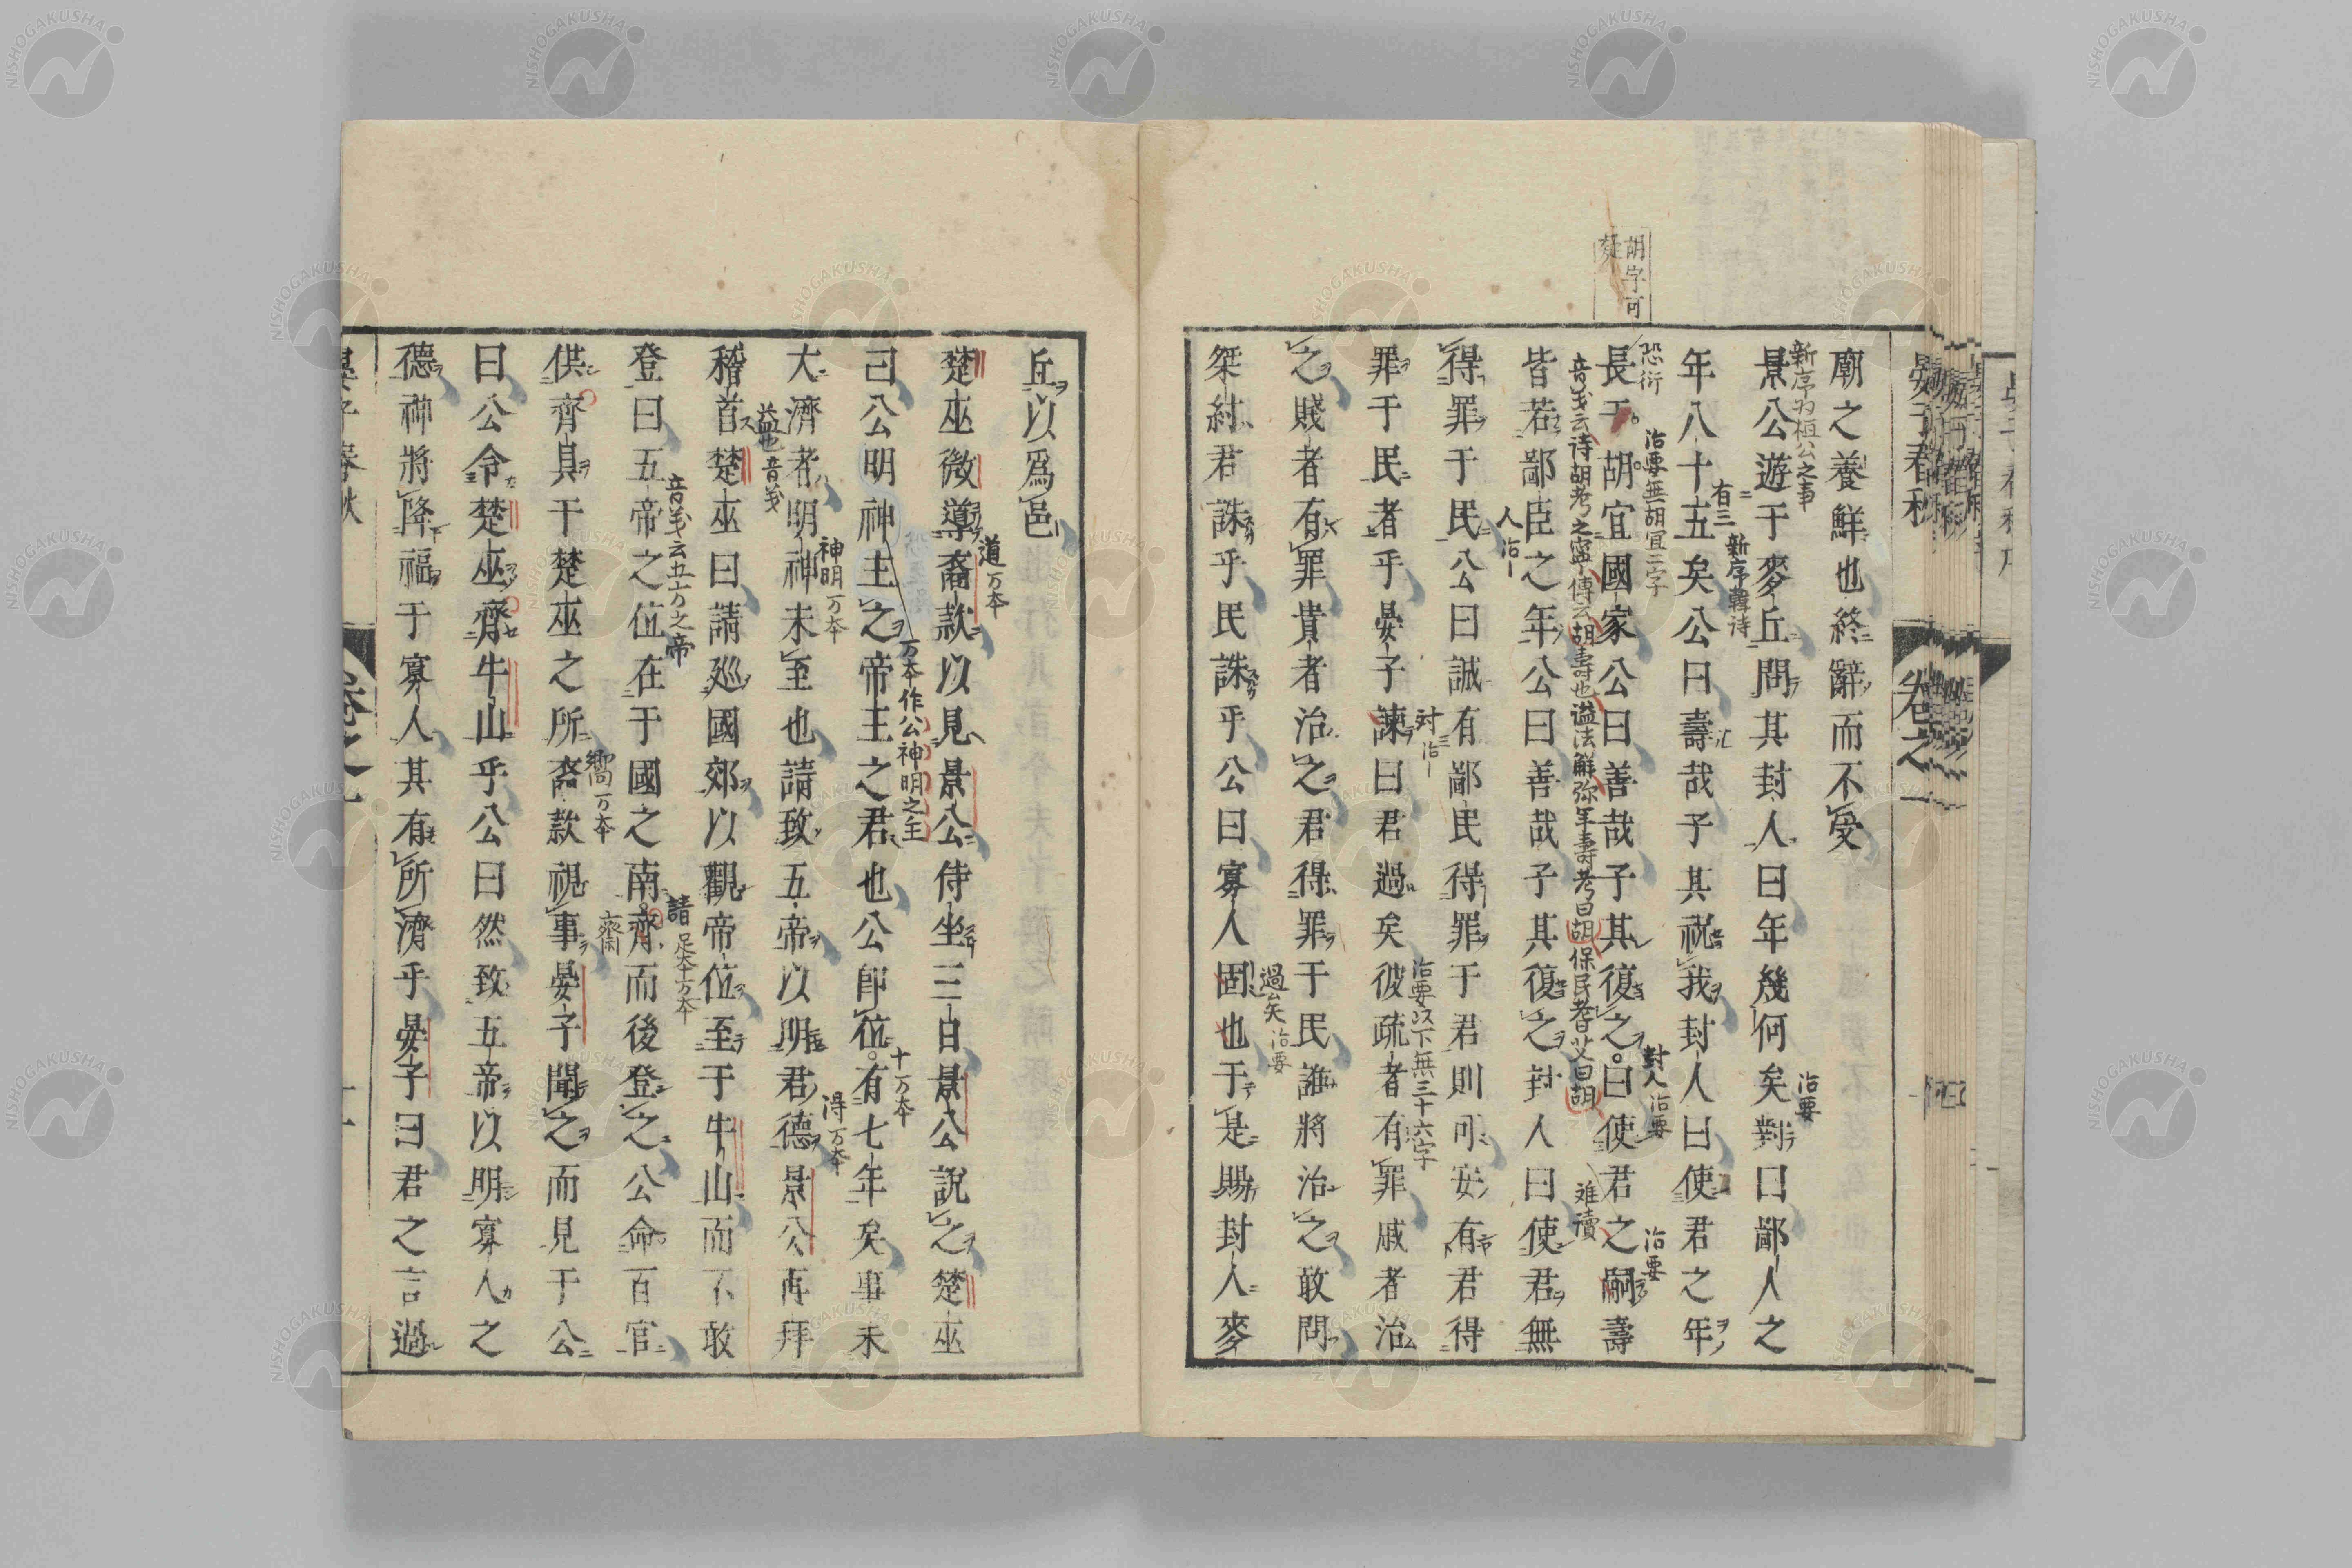 廟之養鮮也終辭而不受
景公遊于麥丘問其封人曰年幾何矣對曰鄙人之
年八十五矣公曰壽哉子其祝我封人曰使君之年
長于胡宜國家公曰善哉子其復之曰使君之嗣壽
皆若鄙臣之年公曰善哉子其復之封人曰使君無
得罪于民公曰誠有鄙民得罪于君則可安有君得
罪于民者乎晏子諫曰君過矣彼疏者有罪戚者治
之賤者有罪貴者治之君得罪于民誰將治之敢問
桀紂君誅乎民誅乎公曰寡人固也于是賜封人麥
丘以爲邑
楚巫微導裔款以見景公侍坐三日景公說之楚巫
曰公明神主之帝王之君也公卽位有七年矣事未
大濟者明神未至也請致五帝以明君德景公再拜
稽首楚巫曰請巡國郊以觀帝位至于牛山而不敢
登曰五帝之位在于國之南齊而後登之公命百官
供齊具于楚巫之所裔款視事晏子聞之而見于公
曰公令楚巫齊牛山乎公曰然致五帝以明寡人之
德神將降福于寡人其有所濟乎晏子曰君之言過
晏子春秋
卷之一
胡字可
疑
恐衍
新序为桓公之事
治要
有三
新序韓詩
治要無胡宜二字
封人治要
治要
音義云诗胡考之寧傳云胡壽也谥法解弥年壽考曰胡保民耆艾曰胡
难讀
人治一
対治一
治要以下無三十六字
過矣治要
道万本
万本作公神明之主
十一万本
神明万本
得万本
益也音義
音義云五方之帝
請足本十方本
齋
嚮万本
晏子春秋
卷之一
NISHOGAKUSHA